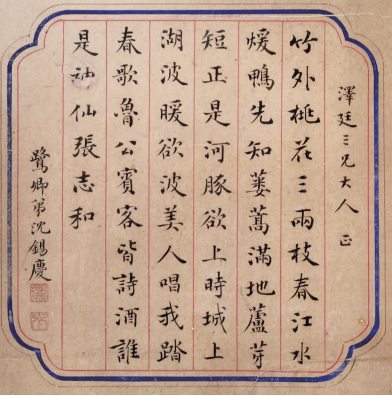 澤廷三兄大人 正
竹外桃花三兩枝春江水
煖鴨先知蔞蒿滿地蘆芽
短正是河豚欲上時城上
湖波暖欲波美人唱我踏
春歌魯公賓客皆詩酒誰
是神仙張志和
鷺卿弟沈錫慶